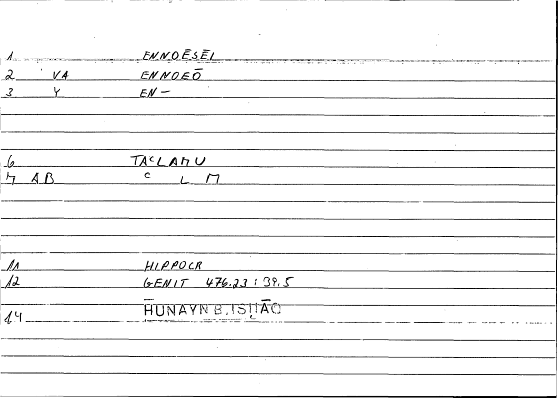 1 ENNOĒSĒI
2 VA ENNOEŌ
3 Y EN-
6 TAᶜLAMU
7 AB ᶜ L M
11 HIPPOCR
12 GENIT 476.23 : 39.5
14 HUNAYN B. ISḤĀQ